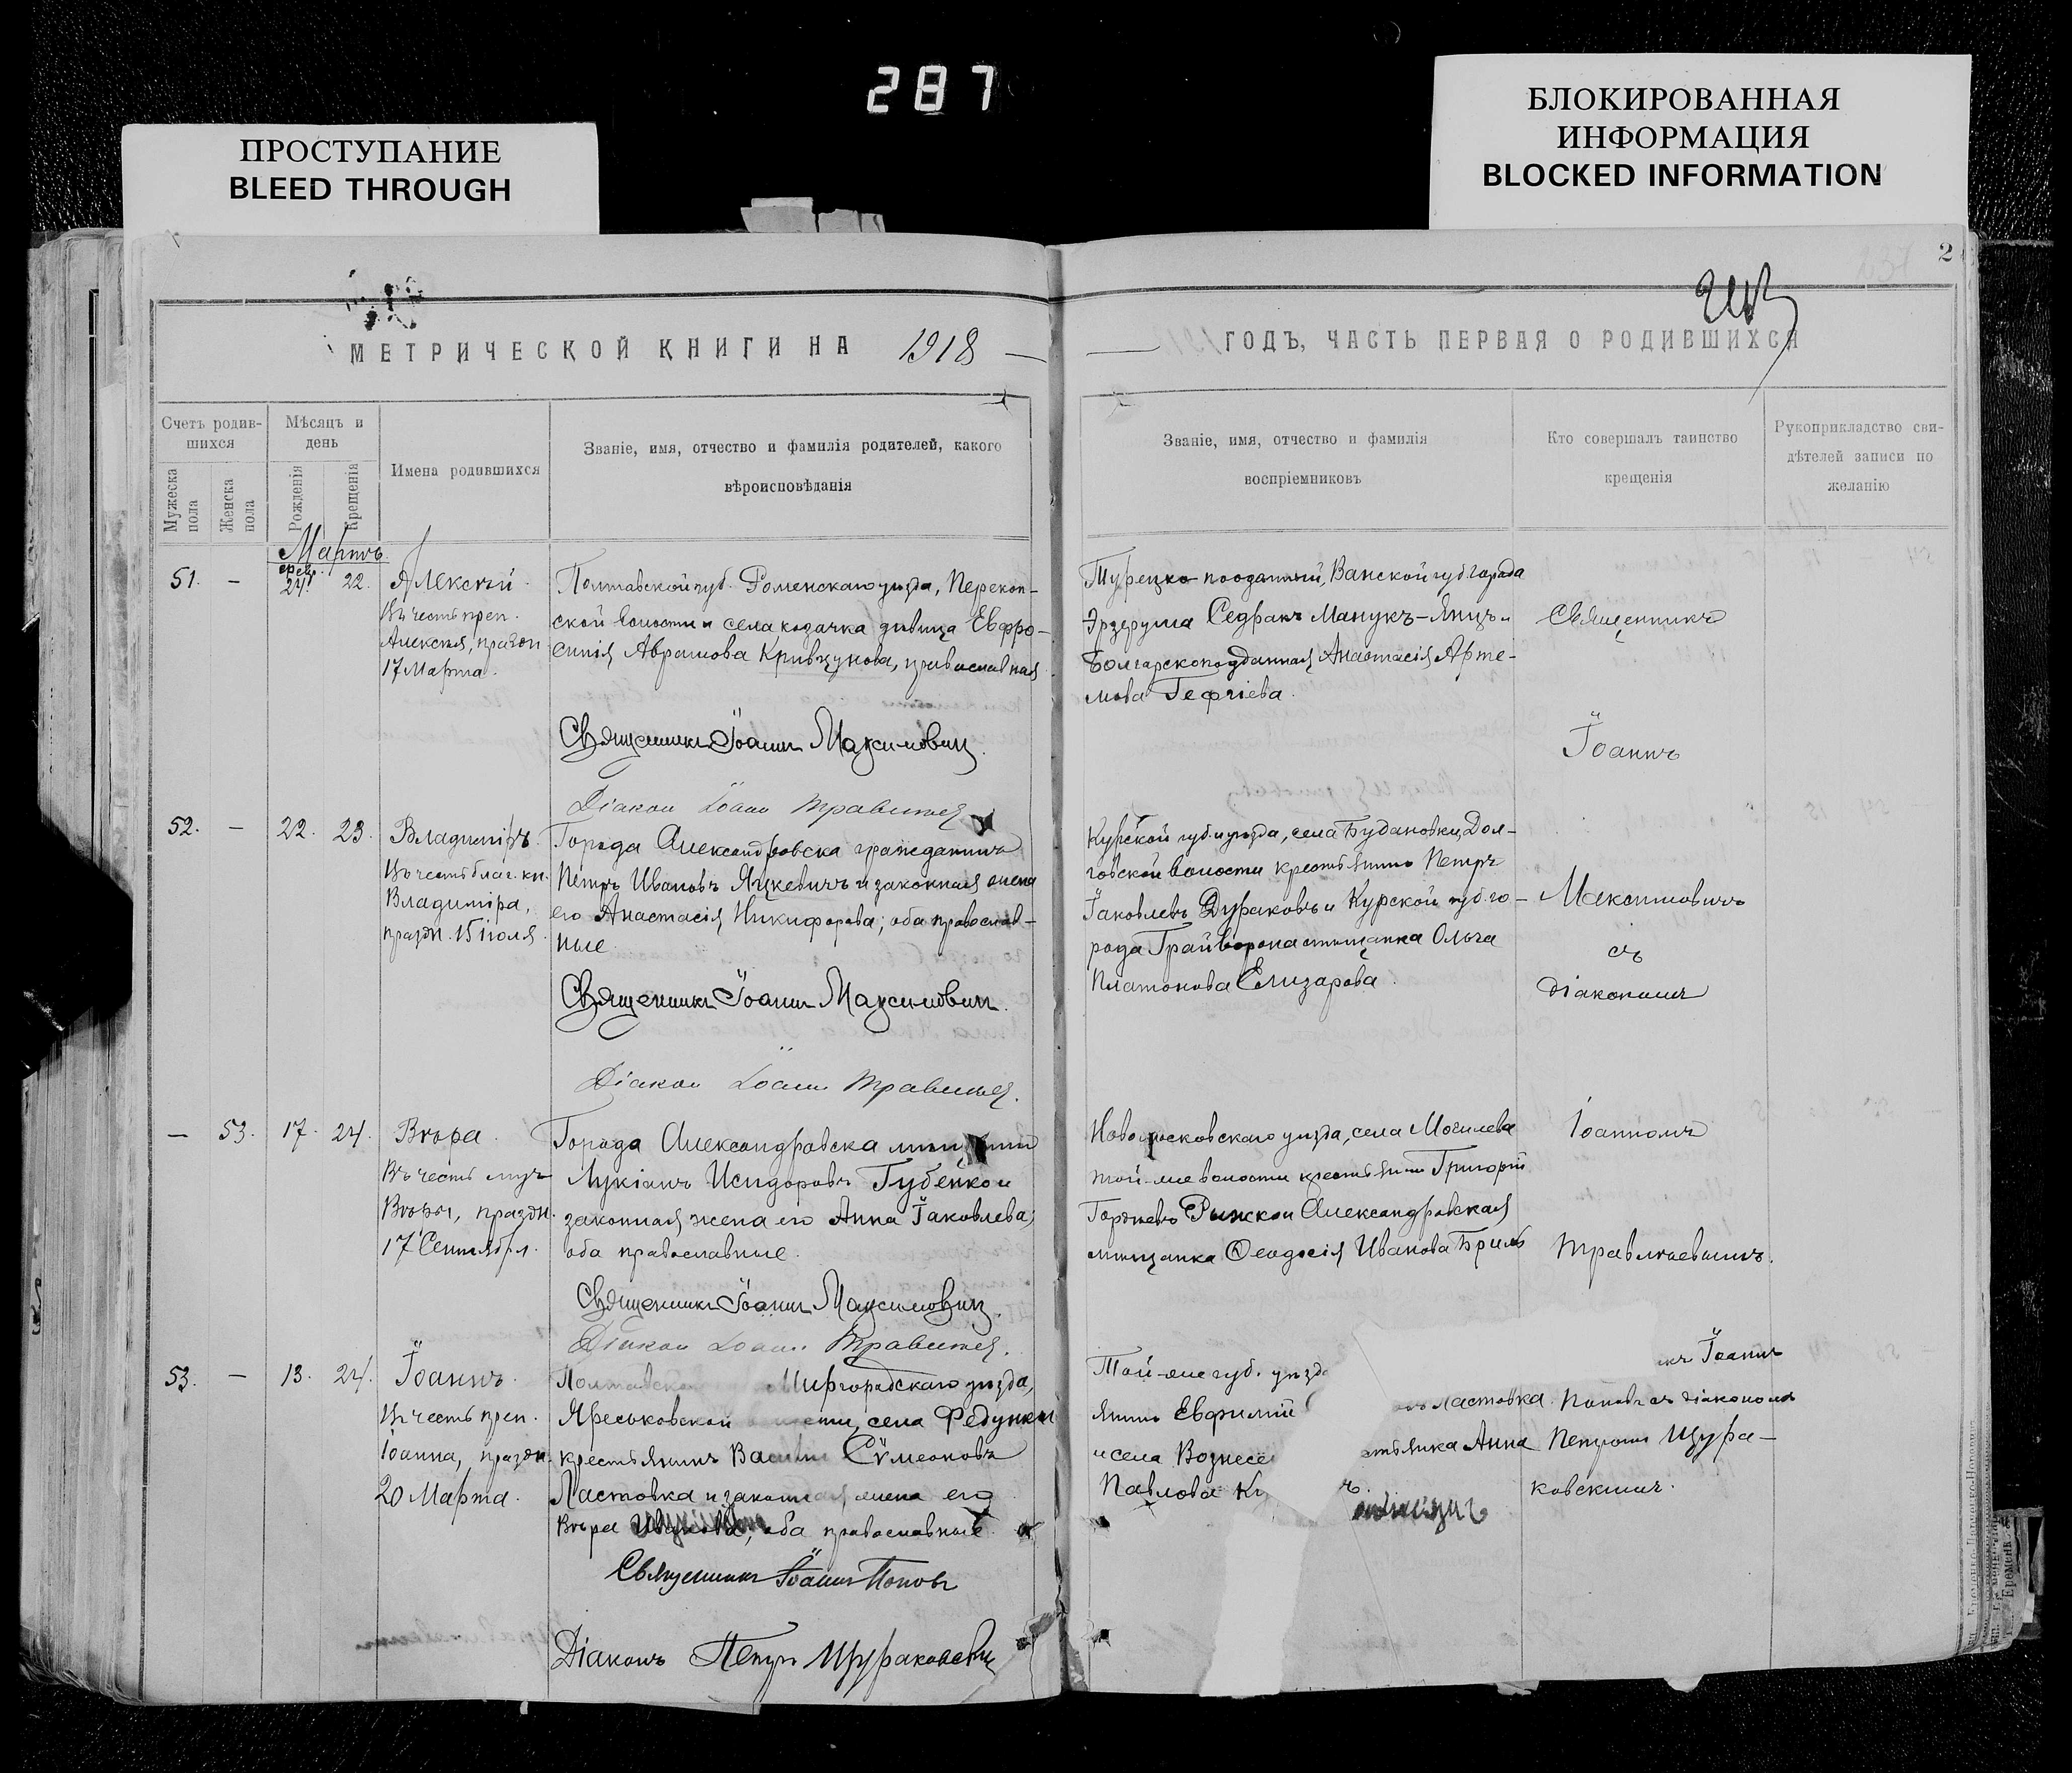 287
ПРОСТУПАНИЕ
BLEED THROUGH
БЛОКИРОВАННАЯ
ИНФОРМАЦИЯ
BLOCKED INFORMATION
2
МЕТРИЧЕСКОЙ КНИГИ НА 1918
Счетъ родив-
шихся
Мужеска пола
Женска пола
Мѣсяцъ и
день
Рожденія
Крещенія
Имена родившихся
Званіе, имя, отчество и фамилія родителей, какого
вѣроисповѣданія
Мартъ
51. – 24 22.
Алексѣй
Въ честь преп.
Алексія, праздн
17 Марта.
Полтавской губ. Роменскаго уѣзда, Перекоп-
ской волости и села козачка дѣвица Евфро-
синія Аврамова Кривцунова, православная
Священникъ Іоаннъ Максимовичъ.
Діакон Іоанн
52. – 22. 23.
Владиміръ.
Въ честь благ. кн.
Владиміра,
праздн. 15 іюля
Города Александровска гражданинъ
Петръ Ивановъ Яцкевичъ и законная жена
его Анастасія Никифорова; оба православ-
ные
Священникъ Іоаннъ Максимовичъ.
Діакон Іоанн
– 53. 17. 24.
Вѣра.
Въ честь муч
Вѣры, праздн.
17 Сентября.
Города Александровска
Лукіанъ Исидоровъ Губенко и
законная жена его Анна Іаковлева;
оба православные.
Священникъ Іоаннъ Максимовичъ.
Діакон Іоанн
53. – 13. 24.
Іоаннъ.
Въ честь преп.
Іоанна, праздн.
20 Марта.
Миргородскаго уѣзда,
Яреськовской волости, села Федунки
крестьянинъ Василій Сѵмеоновъ
Ластовка и законная жена его
Вѣра Иванова, оба православные
Священникъ Іоаннъ Поповъ
Діаконъ Петръ Щураковскій
ГОДЪ, ЧАСТЬ ПЕРВАЯ О РОДИВШИХСЯ
Званіе, имя, отчество и фамилія
воспріемниковъ
Кто совершалъ таинство
крещенія
Рукоприкладство сви-
дѣтелей записи по
желанію
Турецко-подданный, Ванской губ. города
Эрзерума Седракъ Манукъ-Янцъ и
Болгарскоподданная Анастасія Арте-
мова Геѳргіева.
Священникъ
Іоаннъ
Курской губ. и уѣзда, села Будановки, Дол-
говской волости крестьянинъ Петръ
Іаковлевъ Дураковъ и Курской губ. го-
рода Грайворона мѣщанка Ольга
Платонова Елизарова.
Максимовичъ
съ
діакономъ
Новомосковскаго уѣзда, села Могилева
той-же волости крестьянин Григорій
Рижкой Александровская
мѣщанка Ѳеодосія Иванова Бриль
Іоанномъ
Травлѣевымъ.
Той-же губ. уѣзд
янинъ Евфимій
Ластовка
и села Вознесе
стьянка Анна
Павлова
Іоаннъ
Поповъ съ діакономъ
Петромъ Щура-
ковскимъ.